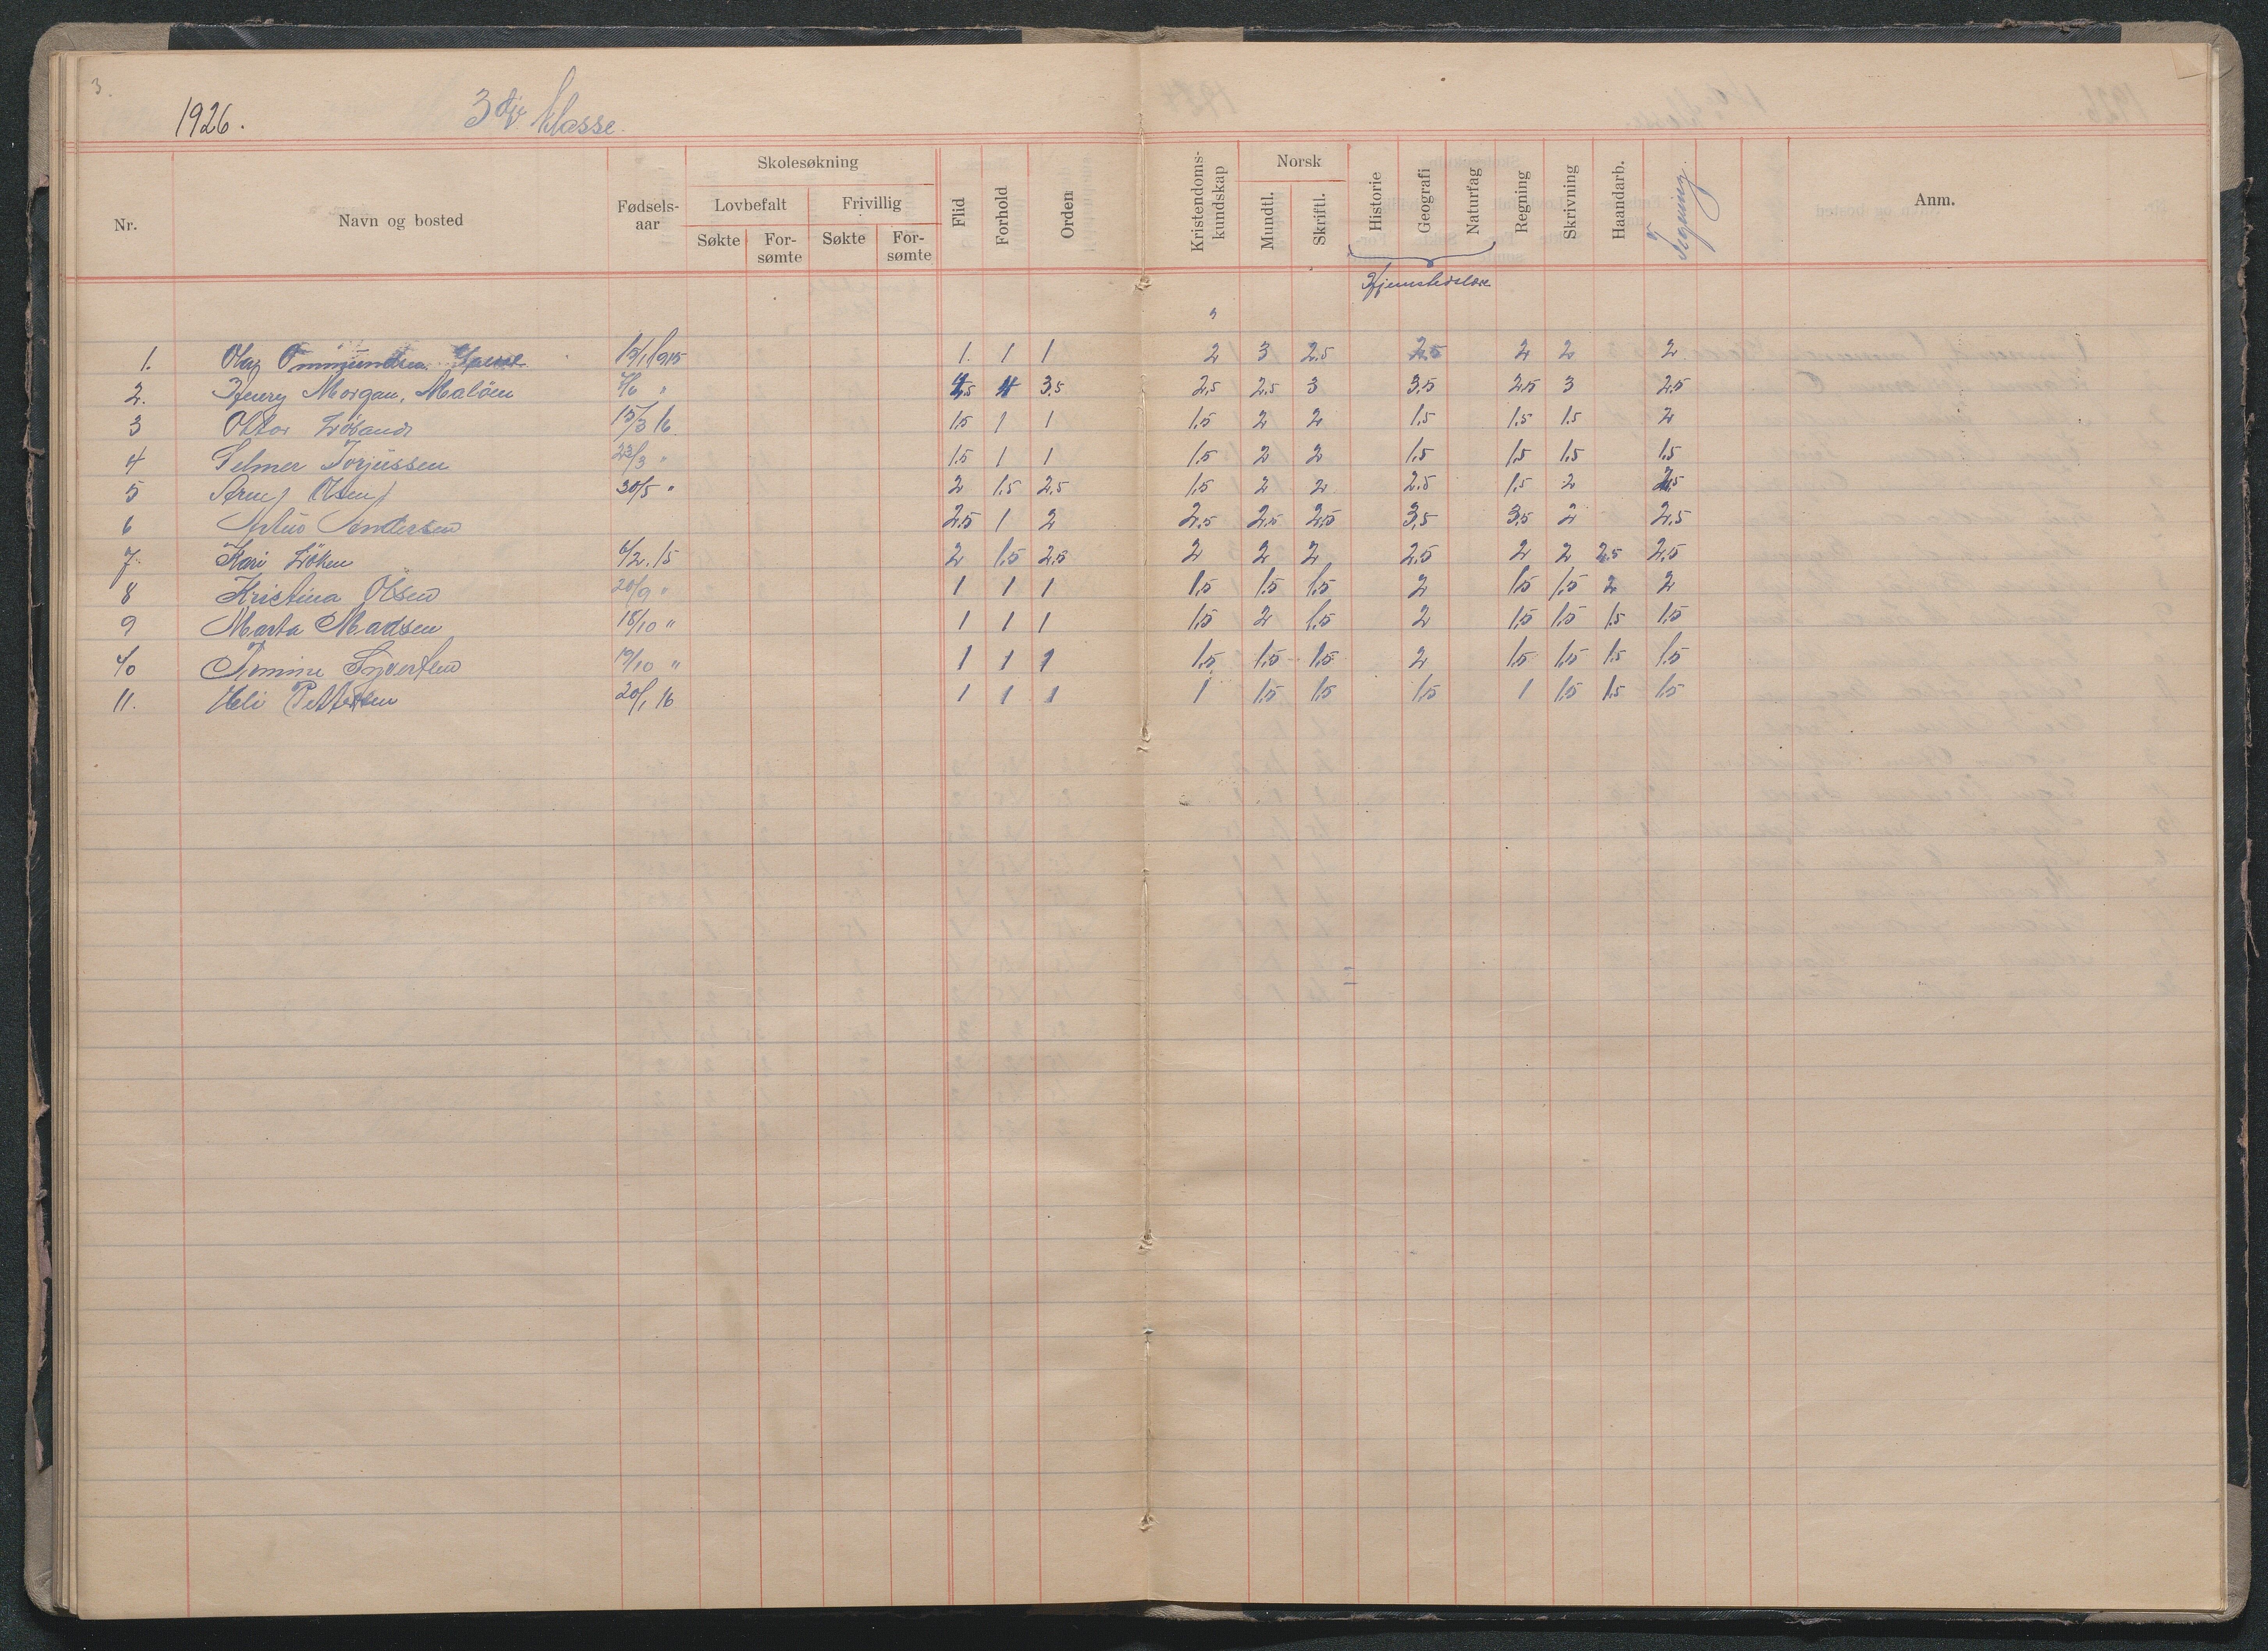 3.
1926. 3dje Klasse.
Nr. Navn og bosted Fødsels-aar Skolesøkning Lovbefalt Søkte For-sømte Frivillig Søkte For-sømte Flid Forhold Orden Kristendoms-kundskap Norsk Mundtl. Skriftl. Historie Geografi Naturfag Regning Skrivning Haandarb. Tegning. Anm.
Hjemstedslære
1. Olav Ommundsen 15/1 1915 1. 1 1 2 3 2.5 2.5 2 2 2
2. Henry Morgan, Malöen " 4 3.5 2.5 2.5 3 3.5 2.5 3 2.5
3 15/3 16 1.5 1 1 1.5 2 2 1.5 1.5 1.5 2
4 Selmer Torjussen 23/3 " 1.5 1 1 1.5 2 2 1.5 1.5 1.5 1.5
5 Olsen 30/5 " 2 1.5 2.5 1.5 2 2 2.5 1.5 2 2.5
6 Andersen 2.5 1 2 2.5 2.5 2.5 3.5 3.5 2 2.5
7. Kari Löken 6/2. 15 2 1.5 2.5 2 2 2 2.5 2 2 2.5 2.5
8 Kristina Olsen 20/9 " 1 1 1 1.5 1.5 1.5 2 1.5 1.5 2 2
9 Marta Madsen 18/10 " 1 1 1 1.5 2 1.5 2 1.5 1.5 1.5 1.5
10 Tomine Syvertsen 19/10 " 1 1 1 1.5 1.5 1.5 2 1.5 1.5 1.5 1.5
11. Pettersen 20/1 16 1 1 1 1 1.5 1.5 1.5 1 1.5 1.5 1.5